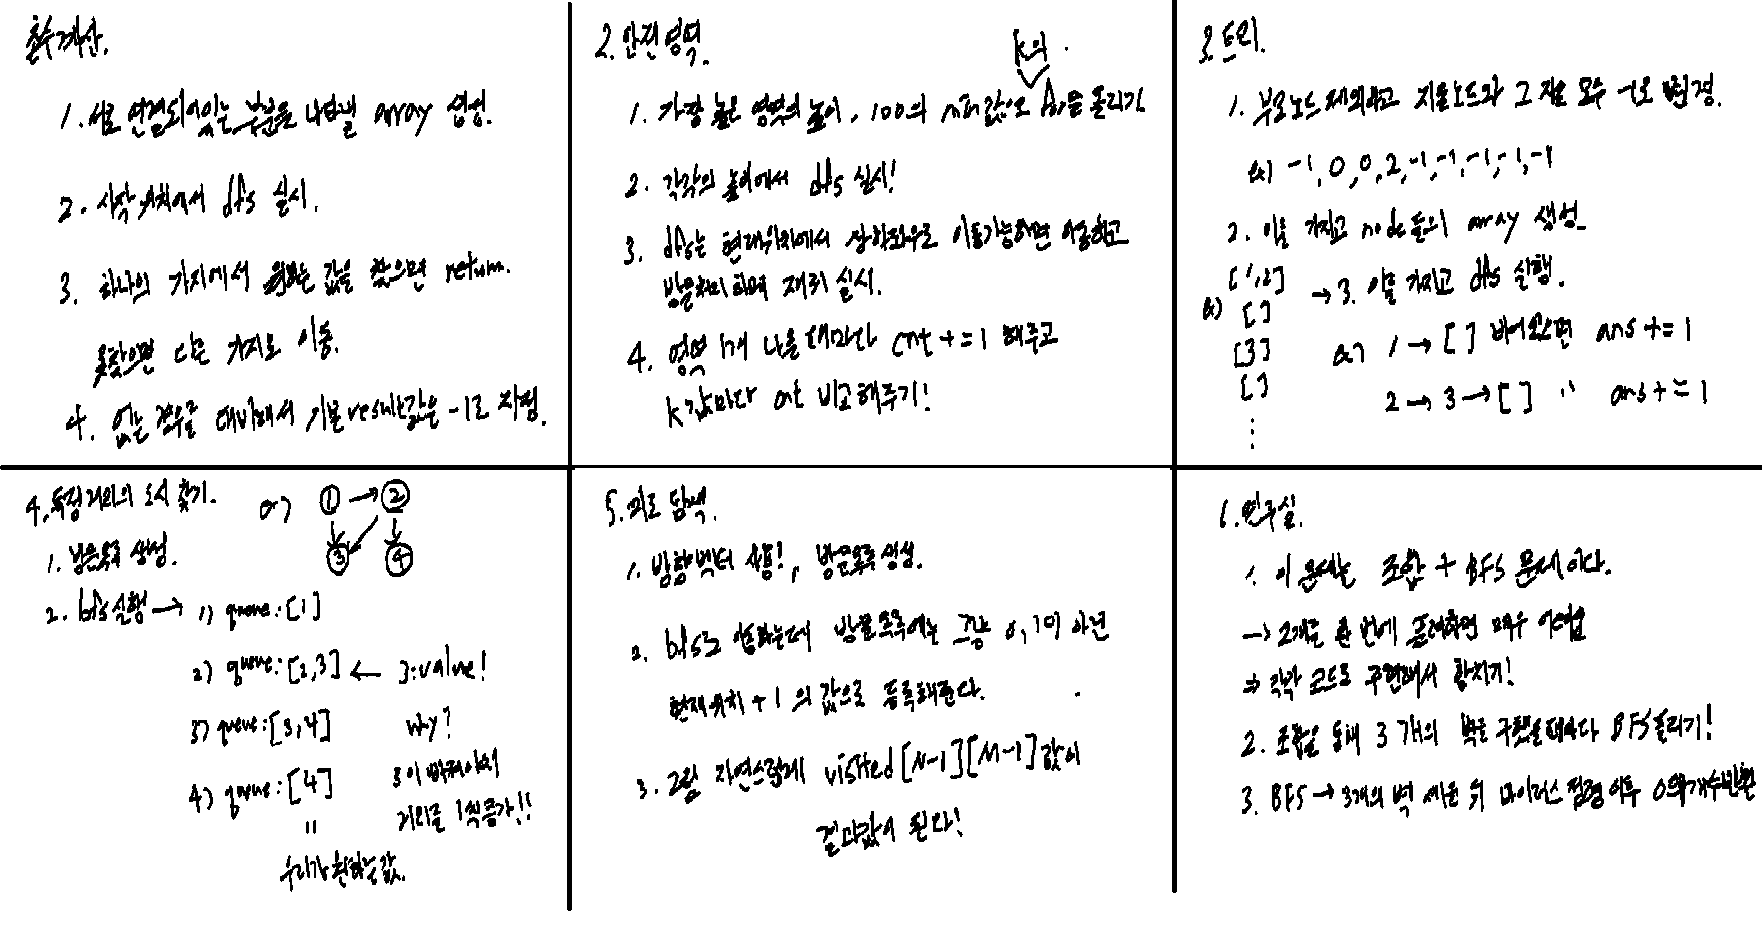 촌수계산.
1. 서로 연결되어있는 부분을 나타낼 array 생성.
2. 시작 위치에서 dfs 실시.
3. 하나의 가지에서 원하는 값을 찾으면 return.
못찾으면 다른 가지로 이동.
4. 없는 경우를 대비해서 기본 result값은 -1로 지정.
2. 안전 영역.
k의
1. 가장 높은 영역의 높이, 100의 min값으로 for문 돌리기
2. 각각의 높이에서 dfs 실시!
3. dfs는 현재위치에서 상하좌우로 이동가능하면 이동하고
방문처리하며 재귀 실시.
4. 영역 1개 나올 때마다 cnt += 1 해주고
k값마다 cnt 비교해주기!
3. 트리.
1. 부모노드 제외하고 지울노드와 그 자료 모두 -1로 변경.
ex) -1, 0, 0, 2, -1, -1, -1, -1, -1
2. 이를 가지고 node들의 array 생성.
[1,2] → 3. 이를 가지고 dfs 실행.
ex) []
[3] ex) 1 → [] 비어있으면 ans += 1
[] 2 → 3 → [] " ans += 1
⋮
4. 특정 거리의 도시 찾기.
ex) ① → ②
③ ④
1. 방문목록 생성.
2. bfs 실행 → 1) queue: [1]
2) queue: [2,3] ← 3: value!
3) queue: [3,4] why?
4) queue: [4] 3이 빠져야지
거리를 1씩 증가!!
"
우리가 원하는 값.
5. 미로 탐색.
1. 방향벡터 사용!, 방문목록 생성.
2. bfs로 탐색하는데 방문목록에는 그냥 0, 1이 아닌
현재위치 + 1 의 값으로 등록해준다.
3. 그럼 자연스럽게 visited[N-1][M-1] 값이
결과값이 된다!
6. 연구실.
1. 이 문제는 조합 + BFS 문제이다.
→ 2개를 한 번에 하면 매우 어려움
⇒ 각각 코드로 구현해서 합치기!
2. 조합을 통해 3개의 벽을 구했을때마다 BFS돌리기!
3. BFS → 3개의 벽 세운 뒤 바이러스 점령 이후 0의 개수 반환